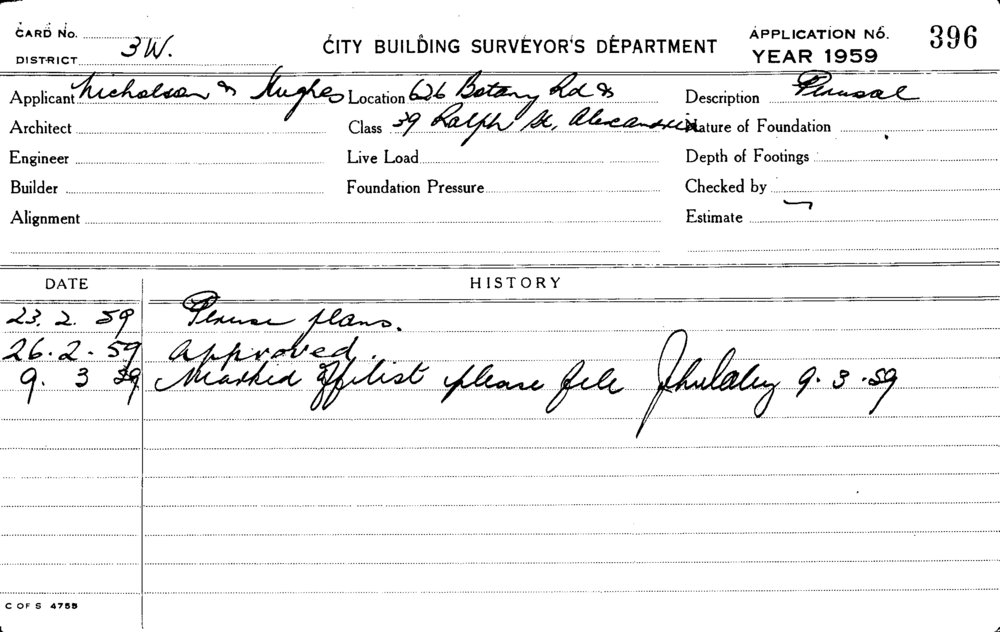 CARD No.
DISTRICT 3W.
CITY BUILDING SURVEYOR'S DEPARTMENT
APPLICATION No. 396
YEAR 1959
Applicant Nicholson & Hughes Location 626 Botany Rd & Description Perusal
Architect Class 39 Ralph St, Alexandria Nature of Foundation
Engineer Live Load Depth of Footings
Builder Foundation Pressure Checked by
Alignment Estimate
DATE HISTORY
23. 2. 59 Peruse plans.
26. 2. 59 Approved.
9. 3 59 Marked off list please file 9. 3. 59
C OF S 475B